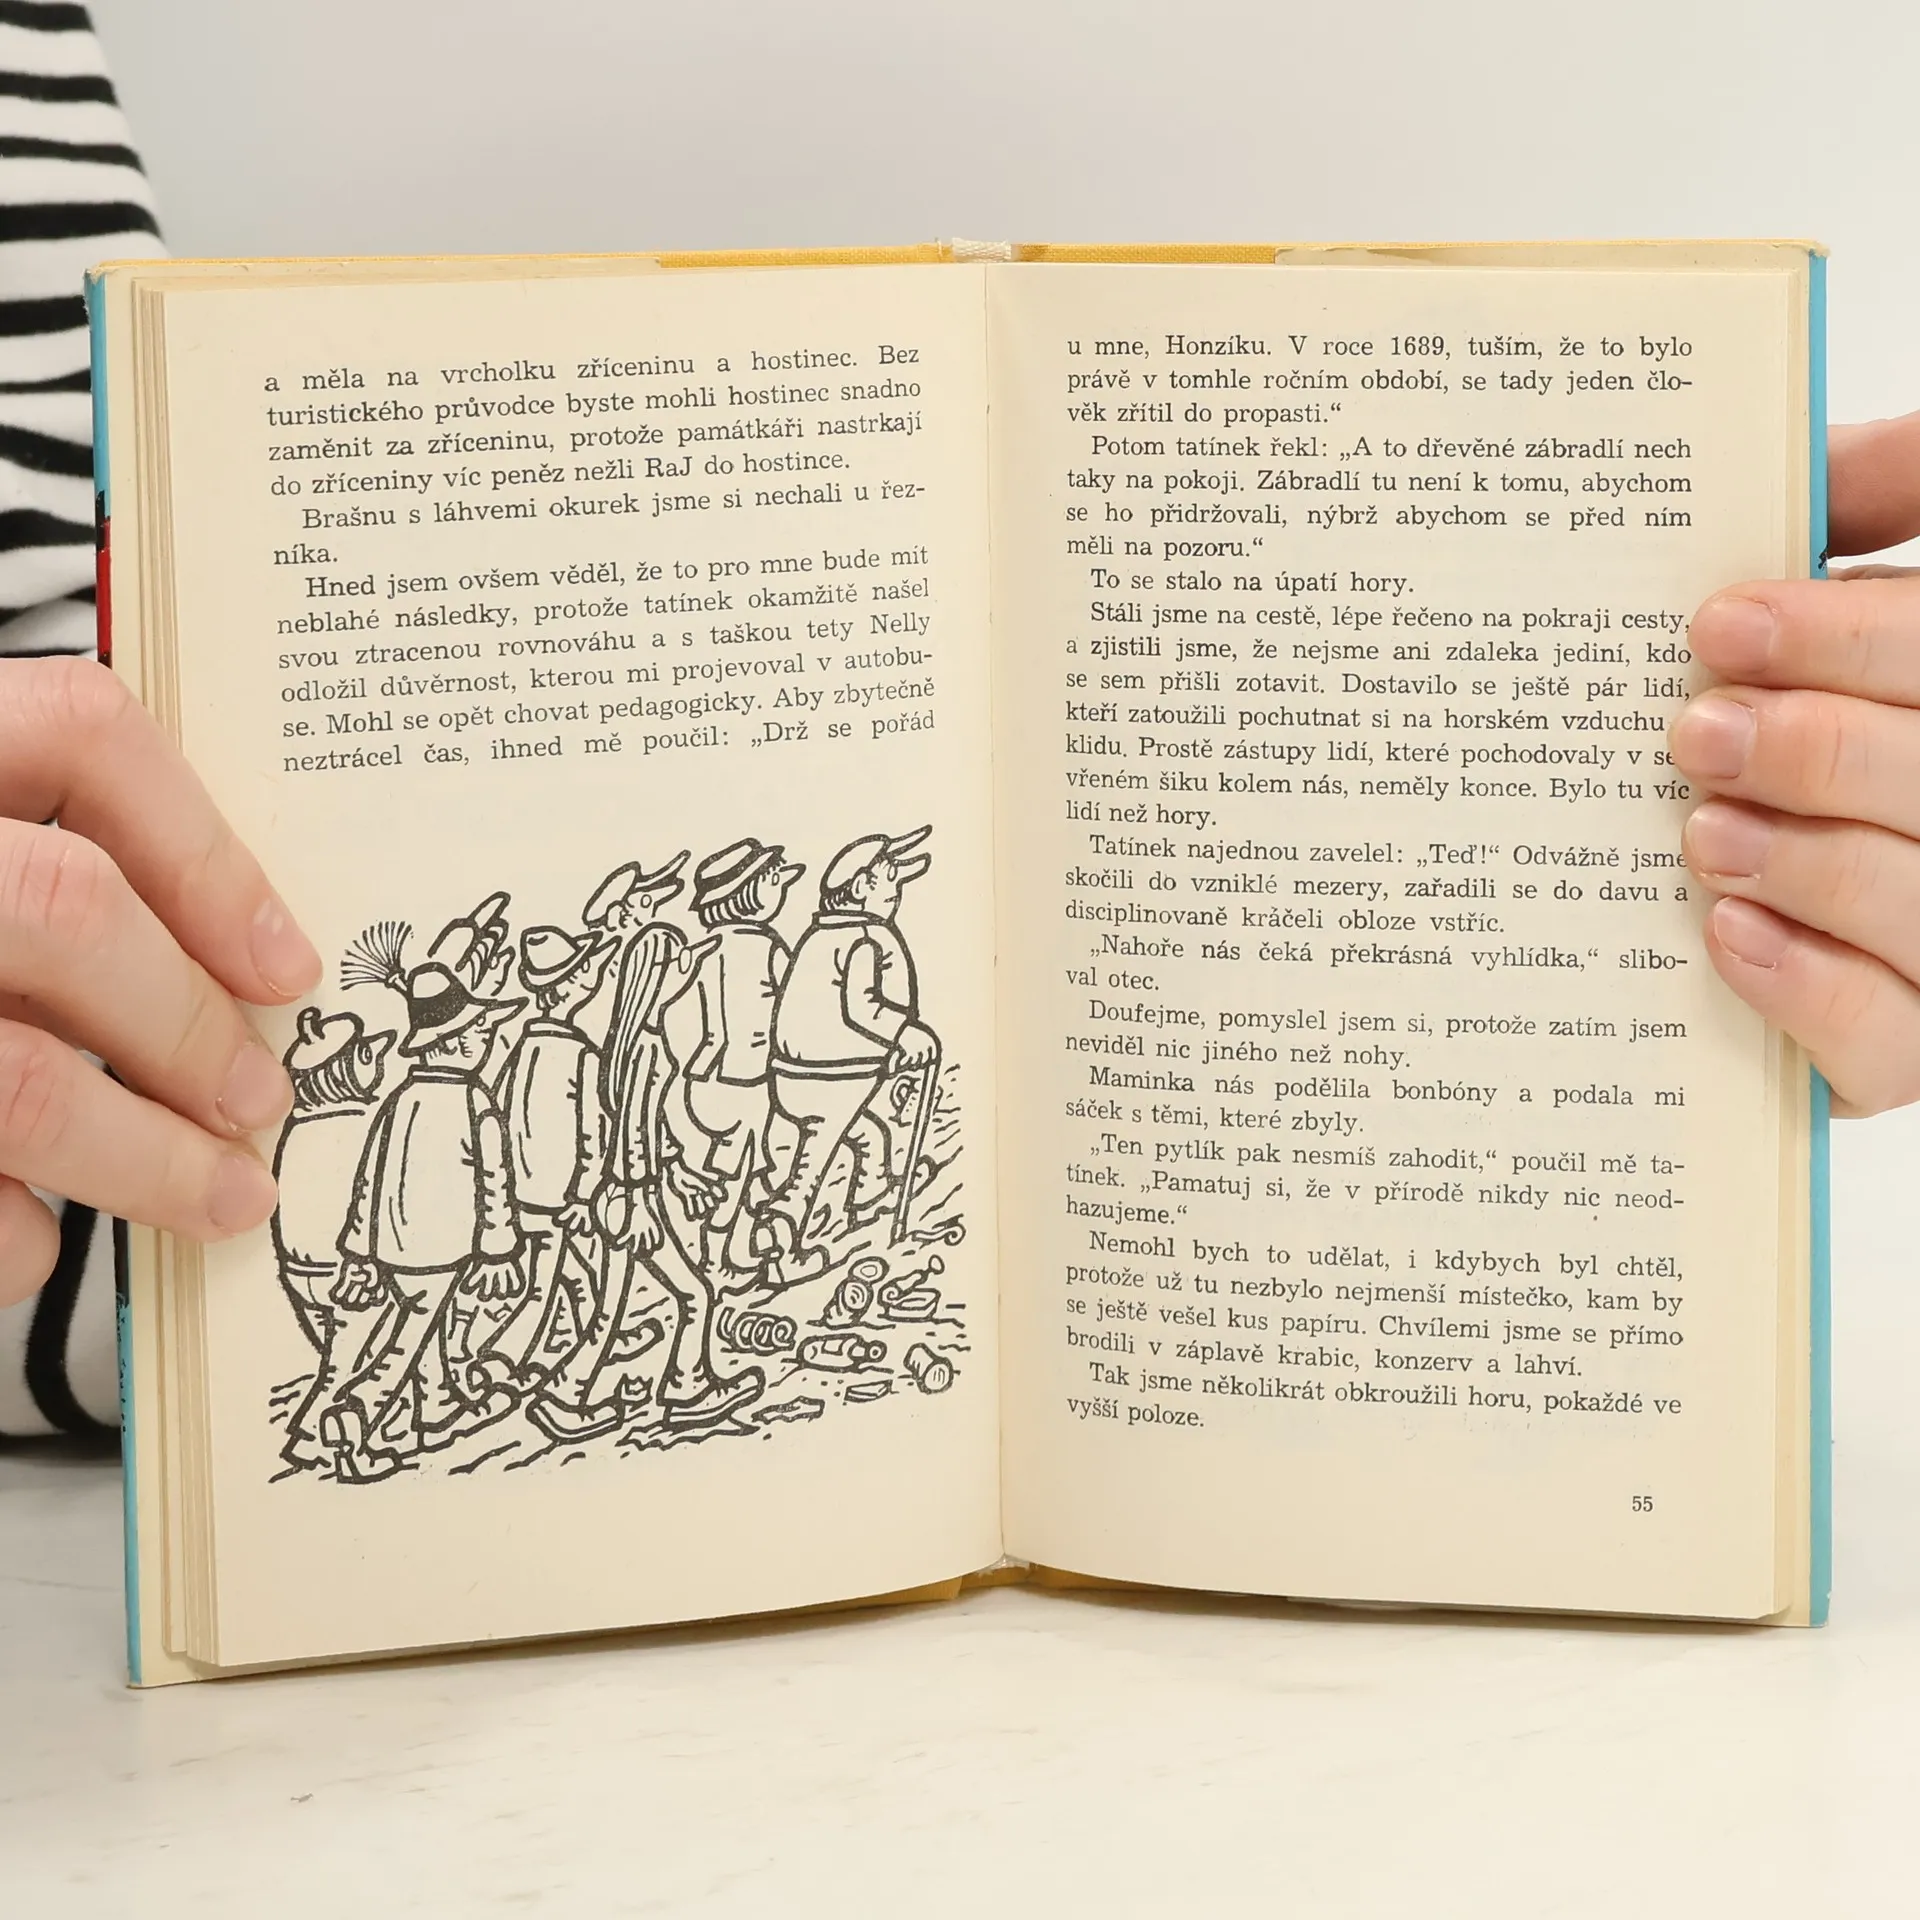 a měla na vrcholku zříceninu a hostinec. Bez
turistického průvodce byste mohli hostinec snadno
zaměnit za zříceninu, protože památkáři nastrkají
do zříceniny víc peněz nežli RaJ do hostince.
Brašnu s láhvemi okurek jsme si nechali u řez-
níka.
Hned jsem ovšem věděl, že to pro mne bude mít
neblahé následky, protože tatínek okamžitě našel
svou ztracenou rovnováhu a s taškou tety Nelly
odložil důvěrnost, kterou mi projevoval v autobu-
se. Mohl se opět chovat pedagogicky. Aby zbytečně
neztrácel čas, ihned mě poučil: „Drž se pořád
u mne, Honzíku. V roce 1689, tuším, že to bylo
právě v tomhle ročním období, se tady jeden člo-
věk zřítil do propasti.“
Potom tatínek řekl: „A to dřevěné zábradlí nech
taky na pokoji. Zábradlí tu není k tomu, abychom
se ho přidržovali, nýbrž abychom se před ním
měli na pozoru.“
To se stalo na úpatí hory.
Stáli jsme na cestě, lépe řečeno na pokraji cesty,
a zjistili jsme, že nejsme ani zdaleka jediní, kdo
se sem přišli zotavit. Dostavilo se ještě pár lidí,
kteří zatoužili pochutnat si na horském vzduchu
klidu. Prostě zástupy lidí, které pochodovaly v se
vřeném šiku kolem nás, neměly konce. Bylo tu víc
lidí než hory.
Tatínek najednou zavelel: „Teď!“ Odvážně jsme
skočili do vzniklé mezery, zařadili se do davu a
disciplinovaně kráčeli obloze vstříc.
„Nahoře nás čeká překrásná vyhlídka,“ slibo-
val otec.
Doufejme, pomyslel jsem si, protože zatím jsem
neviděl nic jiného než nohy.
Maminka nás podělila bonbóny a podala mi
sáček s těmi, které zbyly.
„Ten pytlík pak nesmíš zahodit,“ poučil mě ta-
tínek. „Pamatuj si, že v přírodě nikdy nic neod-
hazujeme.“
Nemohl bych to udělat, i kdybych byl chtěl,
protože už tu nezbylo nejmenší místečko, kam by
se ještě vešel kus papíru. Chvílemi jsme se přímo
brodili v záplavě krabic, konzerv a lahví.
Tak jsme několikrát obkroužili horu, pokaždé ve
vyšší poloze.
55